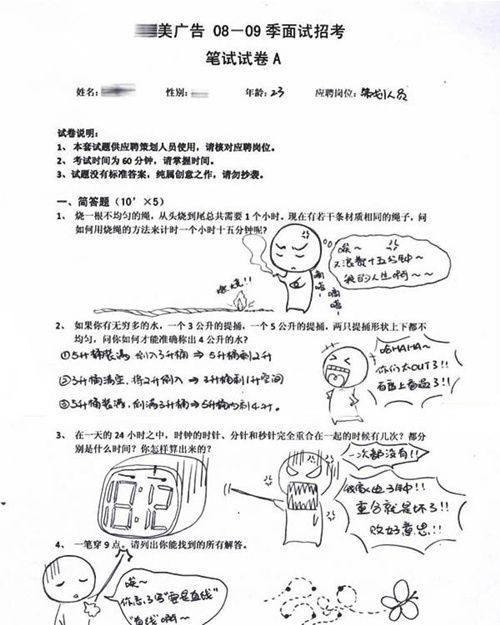 美广告 08—09 季面试招考
笔试试卷 A
姓名: 性别: 年龄: 23 应聘岗位: 策划人员
试卷说明:
1、本套试题供应聘策划人员使用，请核对应聘岗位。
2、考试时间为 60 分钟，请掌握时间。
3、试题没有标准答案，纯属创意之作，请勿抄袭。
一、简答题（10’×5）
1、烧一根不均匀的绳，从头烧到尾总共需要 1 个小时。现在有若干条材质相同的绳子，问
如何用烧绳的方法来计时一个小时十五分钟呢？
唉~
又浪费十五分钟
我的人生啊~~
2、如果你有无穷多的水，一个 3 公升的提捅，一个 5 公升的提捅，两只提捅形状上下都不
均匀，问你如何才能准确称出 4 公升的水？
①5升桶装满 倒入3升桶 ⇒ 5升桶剩2升
②3升桶清空，将2升倒入 ⇒ 3升桶剩1升空间
③5升桶装满，倒满3升桶 ⇒ 5升桶内剩4升。
哈HAHA~
你们太OUT了!!
百度上都有了!!
3、在一天的 24 小时之中，时钟的时针、分针和秒针完全重合在一起的时候有几次？都分
别是什么时间？你怎样算出来的？
一次都没有!!
重合就是坏了!!
败好意思!!
18:12
4、一笔穿 9 点，请列出你能找到的所有解答。
唉~
"直线"啊~